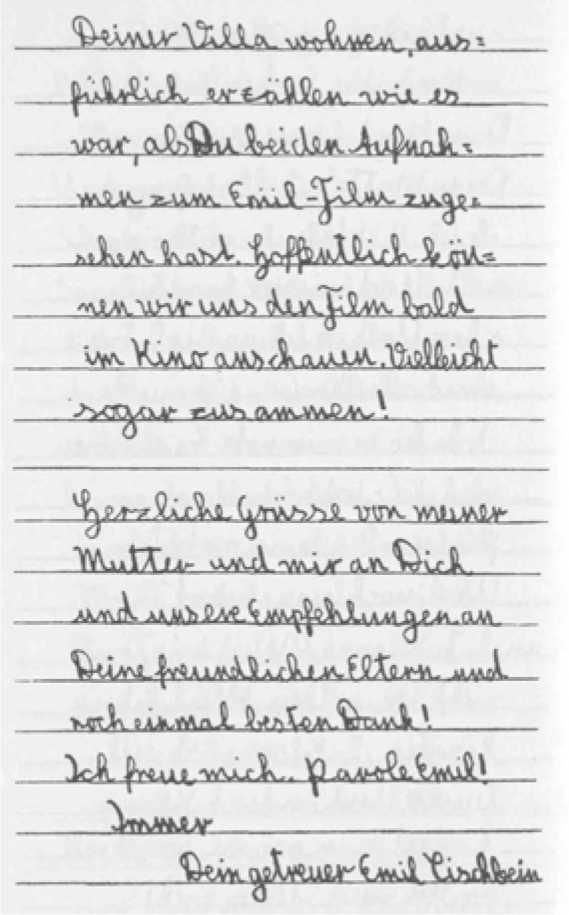 Deiner Villa wohnen, aus=
führlich erzählen wie es
war, als Du bei den Aufnah=
men zum Emil-Film zuge=
sehen hast. Hoffentlich kön=
nen wir uns den Film bald
im Kino anschauen. Vielleicht
sogar zusammen!
Herzliche Grüsse von meiner
Mutter und mir an Dich
und unsere Empfehlungen an
Deine freundlichen Eltern und
noch einmal besten Dank!
Ich freue mich. Parole Emil!
Immer
Dein getreuer Emil Tischbein